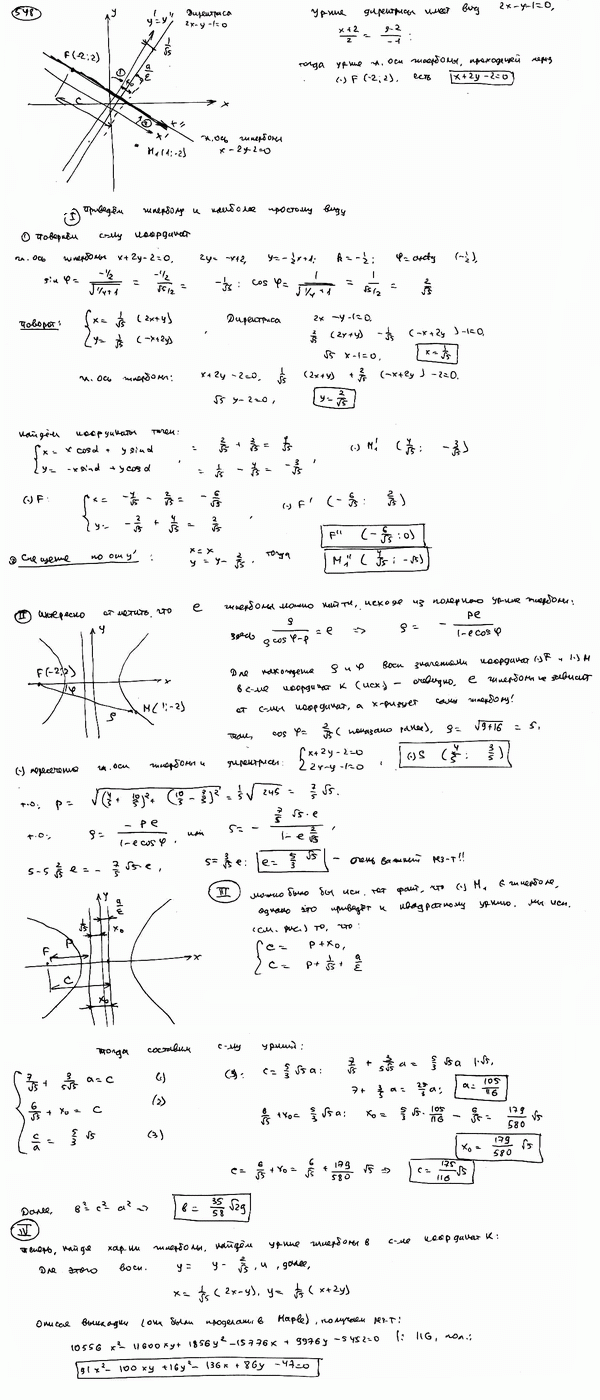 548
y
y'
y''
Директриса
2x-y-1=0
F(-2;2)
1/√5
a/ε
C
x
x'
x''
M₁(1;-2)
гл. ось гиперболы
x-2y-2=0
Ур-ние директрисы имеет вид 2x-y-1=0,
(x+2)/2 = (y-2)/-1 :
тогда ур-ние гл. оси гиперболы, проходящей через
(·) F(-2;2), есть x+2y-2=0
I Приведём гиперболу к наиболее простому виду
① Повернём с-му координат
гл. ось гиперболы x+2y-2=0, 2y=-x+2, y=-½x+1: k=-½; φ=arctg(-½),
sin φ = (-1/2)/√(1/4+1) = (-1/2)/(√5/2) = -1/√5; cos φ = 1/√(1/4+1) = 1/(√5/2) = 2/√5
Поворот: { x = 1/√5 (2x+y)
y = 1/√5 (-x+2y) ,
Директриса 2x-y-1=0,
2/√5 (2x+y) - 1/√5 (-x+2y) -1=0,
√5 x-1=0, x=1/√5
гл. ось гиперболы: x+2y-2=0, 1/√5 (2x+y) + 2/√5 (-x+2y) -2=0,
√5 y-2=0, y=2/√5
Найдём координаты точек:
{ x = x cosα + y sinα
y = -x sinα + y cosα ,
= 2/√5 + 2/√5 = 4/√5
= 1/√5 - 4/√5 = -3/√5 ,
(·) M₁' (4/√5; -3/√5)
(·) F: { x = -4/√5 - 2/√5 = -6/√5
y = -2/√5 + 4/√5 = 2/√5
(·) F' (-6/√5; 2/√5)
② Смещение по оси y': x=x
y=y-2/√5, тогда
F'' (-6/√5; 0)
M₁'' (4/√5; -√5)
II Интересно отметить, что e гиперболы можно найти, исходя из полярного ур-ния гиперболы:
здесь ρ/(ρcosφ-p) = e => ρ = - pe/(1-e cosφ)
y
F(-2;2)
φ
ρ
x
M(1;-2)
Для нахождения ρ и φ восп. значениями координат (·) F и (·) M
в с-ме координат K (исх) - очевидно, e гиперболы не зависит
от с-мы координат, а х-ризует саму гиперболу!
так, cos φ = 2/√5 (показано ранее), ρ = √(9+16) = 5,
(·) пересечения гл. оси гиперболы и директрисы: { x+2y-2=0
2x-y-1=0 , (·) S (4/5; 3/5)
т.о. p = √((4/5+10/5)²+(10/5-3/5)²) = 1/5 √245 = 7/5 √5.
т.о., ρ = -pe/(1-e cosφ), или 5 = - (7/5 √5·e)/(1-e 2/√5),
5-5 2/√5 e = - 7/5 √5·e, 5 = 3/5 √5 e: e = 5/3 √5 - очень важный рез-т!!
III Можно было бы исп. тот факт, что (·) M₁ ∈ гиперболе,
однако это приведёт к квадратному ур-нию. Мы исп.
(см. рис.) то, что:
{ C = P+x₀,
C = P + 1/√5 + a/ε
y
1/√5
a/ε
x₀
F
P
C
x₀
x
Тогда составим с-му ур-ний:
{ 7/√5 + 3/(5√5) a = C (1)
6/√5 + x₀ = C (2)
c/a = 5/3 √5 (3)
(3): C = 5/3 √5 a: 7/√5 + 3/(5√5) a = 5/3 √5 a |·√5,
7 + 3/5 a = 25/3 a; a = 105/116
6/√5 + x₀ = 5/3 √5 a: x₀ = 5/3 √5 · 105/116 - 6/√5 = 179/580 √5
x₀ = 179/580 √5
C = 6/√5 + x₀ = 6/√5 + 179/580 √5 => C = 175/116 √5
Далее, b²=c²-a² => b = 35/58 √29
IV
Теперь, найдя хар-ки гиперболы, найдём ур-ние гиперболы в с-ме координат K:
Для этого восп. y = y-2/√5, и, далее,
x = 1/√5 (2x-y), y = 1/√5 (x+2y)
Опуская выкладки (они были проделаны в Maple), получаем рез-т:
10556 x²-11600xy+1856y²-15776x+9976y-5452=0 |: 116, пол.:
91x²-100xy+16y²-136x+86y-47=0